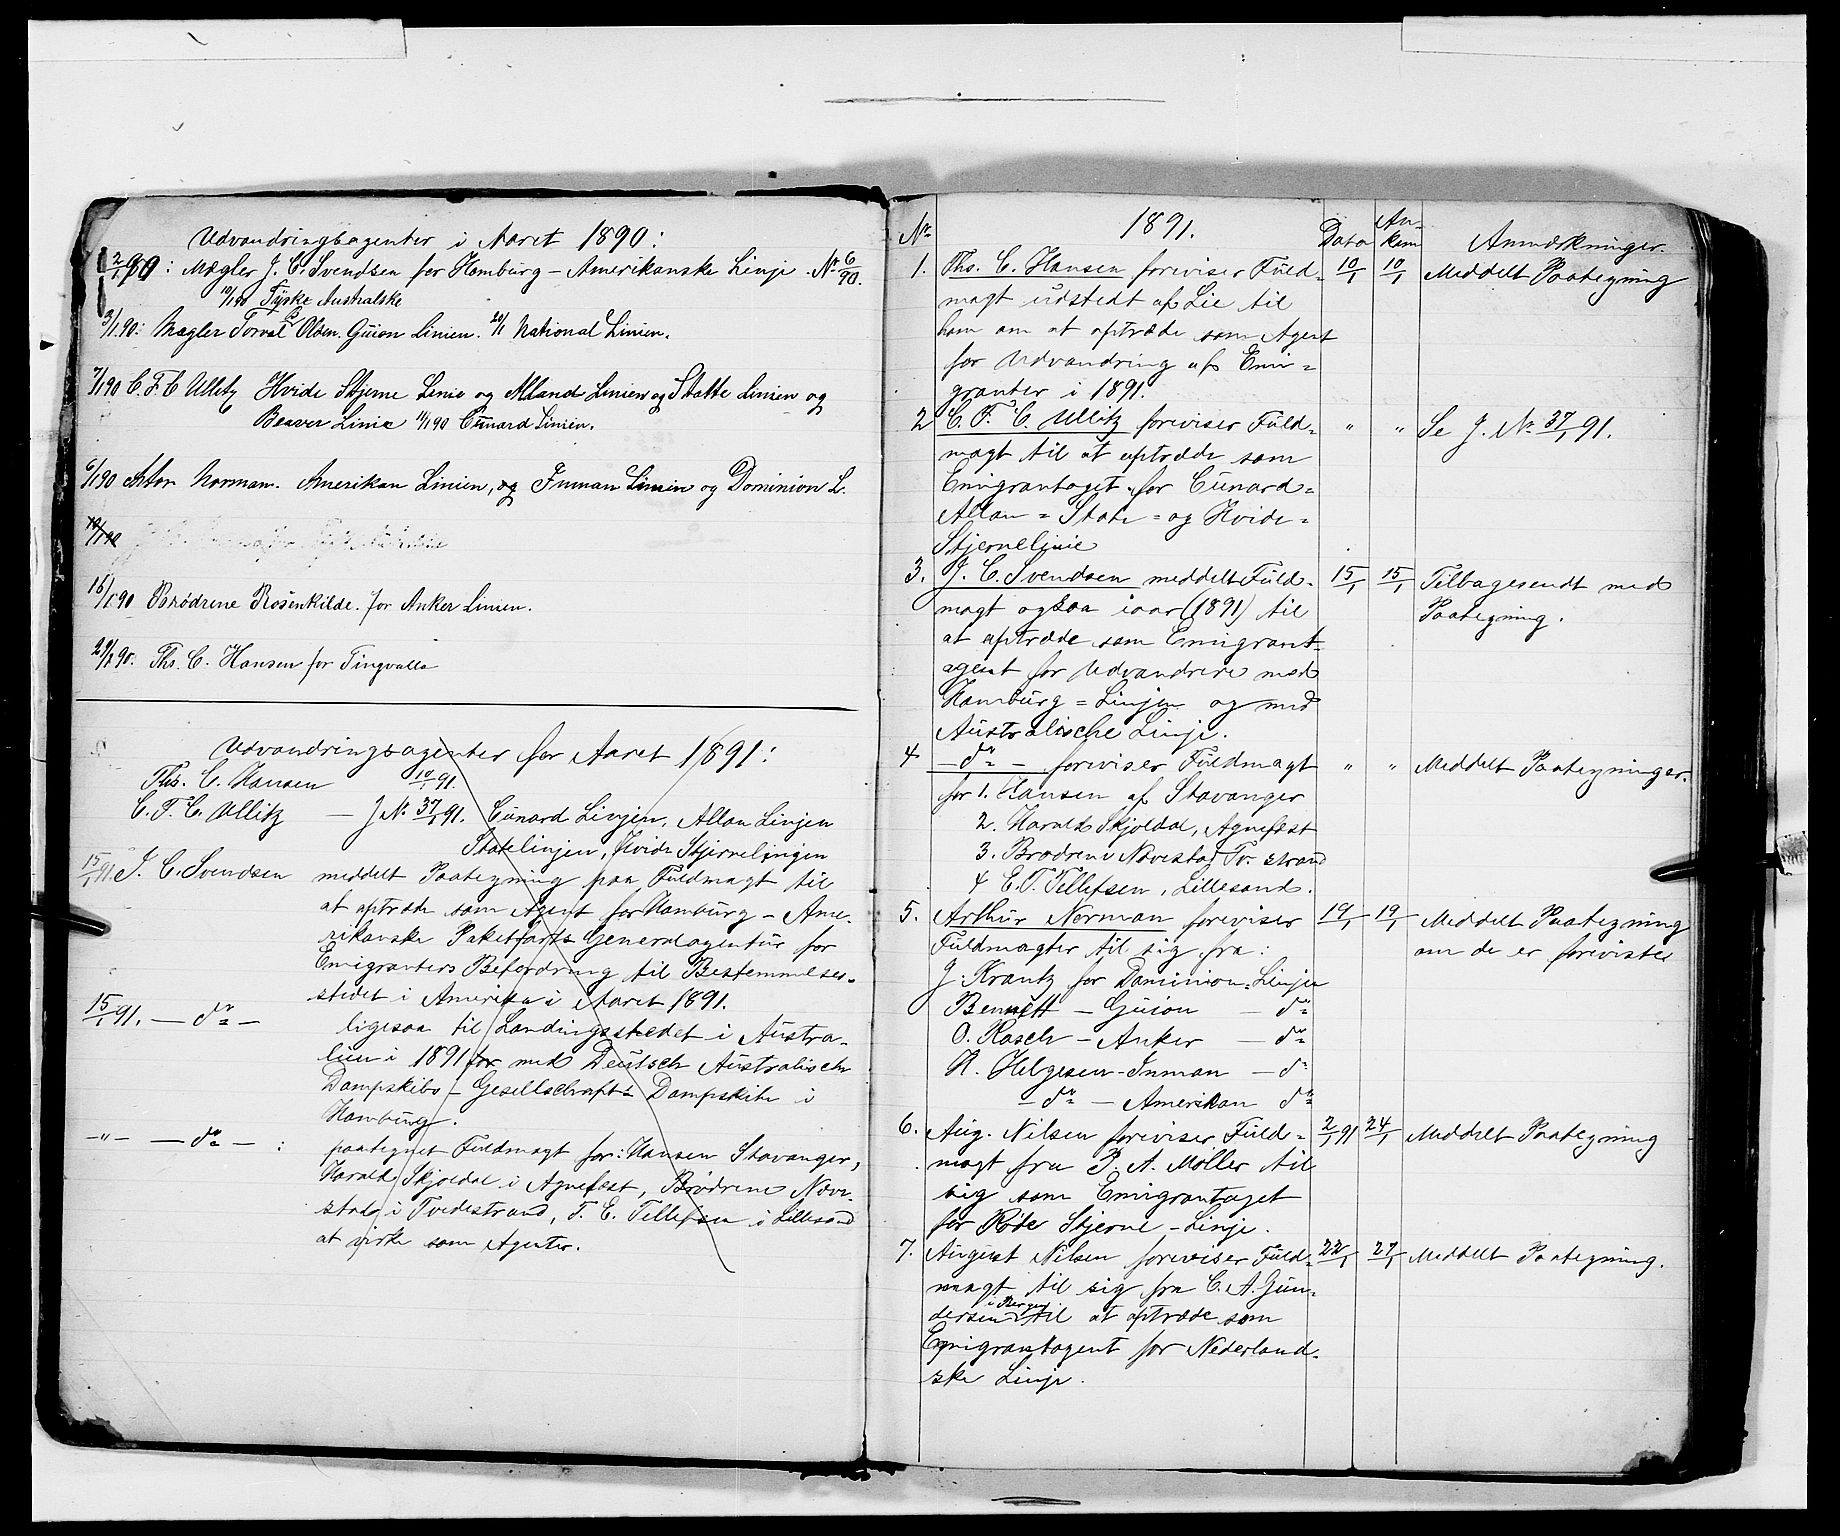 Udvandringsagenter i Aaret 1890:
2/1 90: Mægler J. C. Svendsen for Hamburg - Amerikanske Linje. No 6/90.
10/1 90 Tyske Australske
3/1 90: Mægler Torval B Olsen. Guion Linien. 20/1 National Linien.
7/1 90 C. F. C Ullitz Hvide Stjerne Linie og Alland Linien og Statte Linien og
Beaver Linie 11/1 90 Cunard Linien.
6/1 90 Artor Norman. Amerikan Linien, og Inman Linien og Dominion L.
10/1 90
16/1 90 Brødrene Rosenkilde. for Anker Linien.
29/1 90. Ths. C. Hansen for Tingvalla
Udvandringsagenter for Aaret 1891:
Ths. C. Hansen 10/1 91.
C. F. C. Ullitz — J No 37/1 91. Cunard Linjen, Allan Linjen
Statelinjen, Hvide Stjernelinjen
15/1 91. J. C. Svendsen meddelt Paategning paa Fuldmagt til
at optræde som Agent for Hamburg - Ame-
rikanske Paketfarts Generalagentur for
Emigranters Befordring til Bestemmelses-
stedet i Amerika i Aaret 1891.
15/1 91. — do — ligesaa til Landingsstedet i Austra-
lien i 1891 for med Deutsch Australisch
Dampskibs - Gesellschrafts Dampskibe i
Hamburg.
—"— — do — : paategnet Fuldmagt for: Hansen Stavanger,
Harald Skjoldal i Agnefest, Brødrene Næve-
stad i Tvedestrand, T. E. Tellefsen i Lillesand
at virke som Agenter.
No 1891. Dato An-
kom Anmærkninger.
1. Ths. C. Hansen foreviser Fuld- 10/1 10/1 Meddelt Paategning
magt udstedt af Lie til
ham om at optræde som Agent
for Udvandring af Emi=
granter i 1891.
2 C. F. C. Ullitz foreviser Fuld= " " Se J. No 37/1 91.
magt til at optræde som
Emigrantaget for Cunard=
Allan = State = og Hvide=
Stjernelinie
3. J. C. Svendsen meddelt Fuld- 15/1 15/1 Tilbagesendt med
magt ogsaa iaar (1891) til Paategning.
at optræde som Emigrant
agent for Udvandrere med
Hamburg = Linjen og med
Australische Linje.
4 — do — foreviser Fuldmagt " " Meddelt Paategninger.
for 1. Hansen af Stavanger
2. Harald Skjoldal, Agnefest
3. Brødrene Nævestad Tv. strand
4 E. T. Tellefsen, Lillesand.
5. Arthur Norman foreviser 19/1 19/1 Meddelt Paategning
Fuldmagter til sig fra: om de er forevister
J. Krantz for Dominion-Linjen
Bennett — Guion — do
O. Kasch — Anker — do
R. Helgesen - Inman — do
— do — Amerikan do
6. Aug. Nilsen foreviser Fuld= 2/1 91 24/1 Meddelt Paategning
magt fra P. A. Møller til
sig som Emigrantaget
for Røde Stjerne - Linje.
7. August Nilsen foreviser Fuld= 22/1 27/1 Meddelt Paategning.
magt til sig fra C. A. Gun-
dersen i Bergen til at optræde som
Emigrantagent for Nederland-
ske Linje.